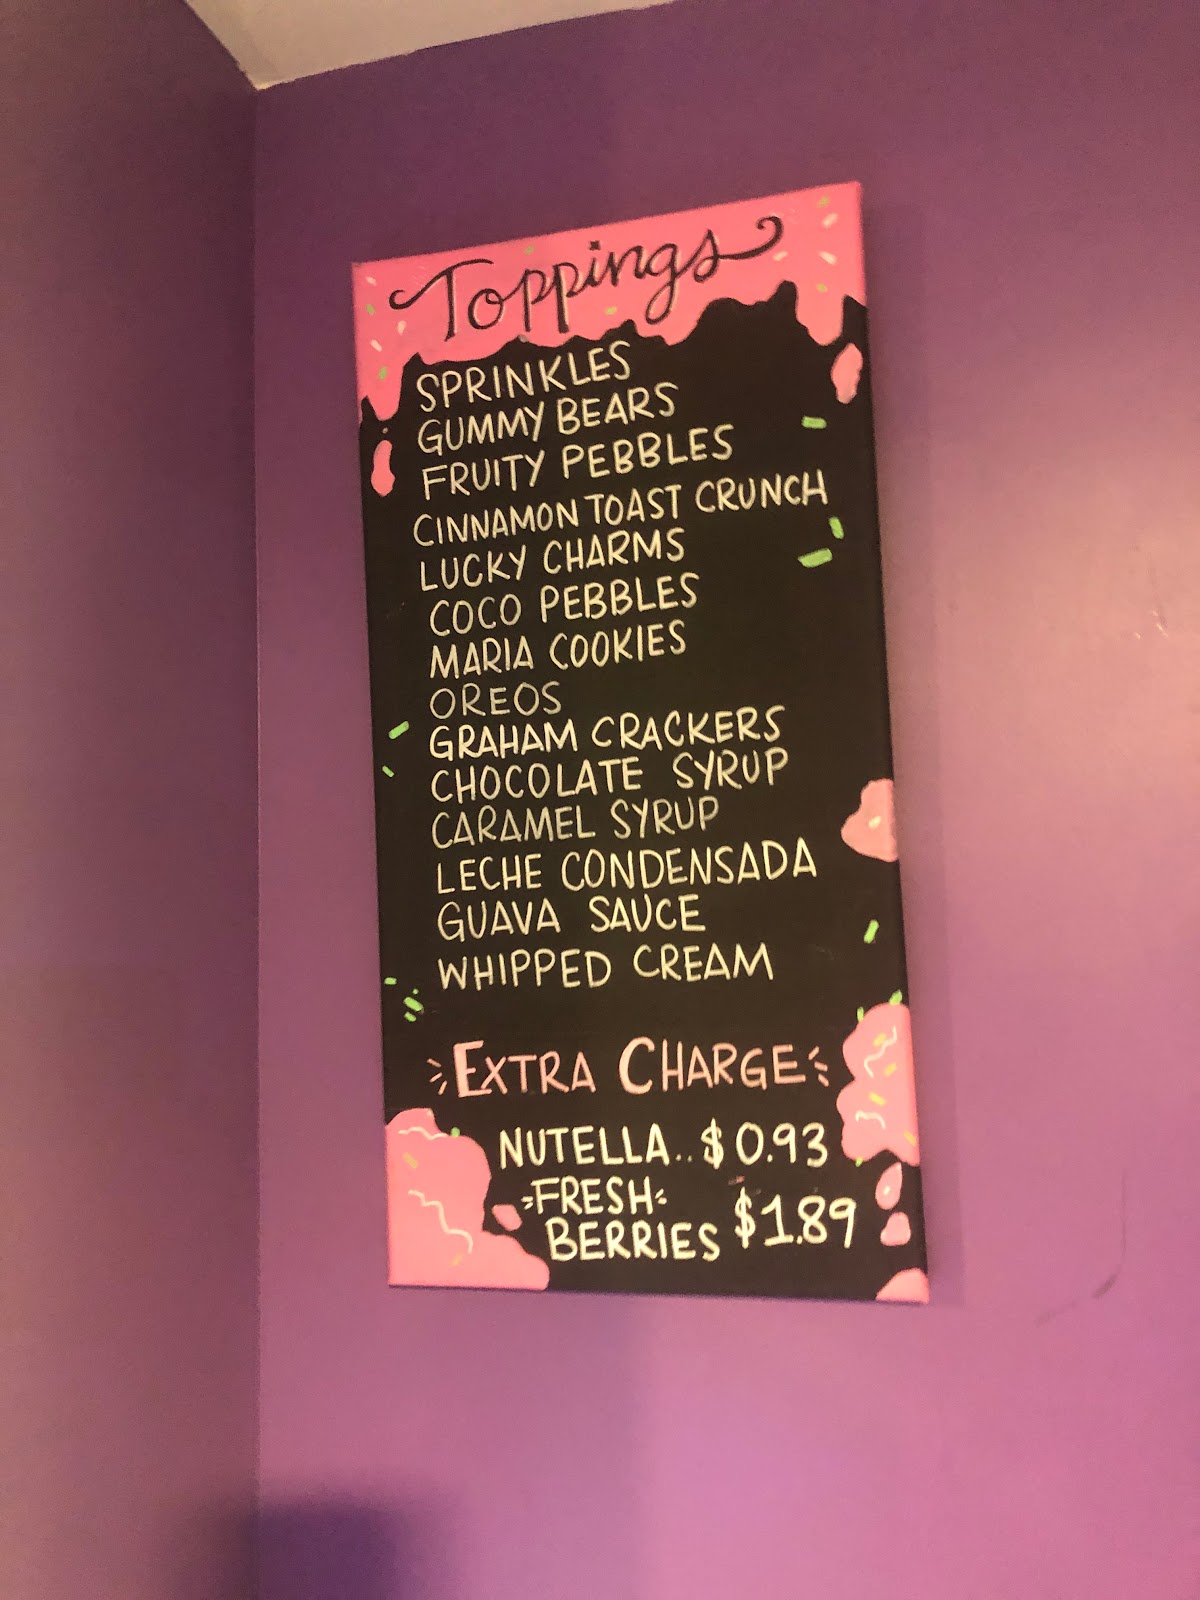 Toppings
SPRINKLES
GUMMY BEARS
FRUITY PEBBLES
CINNAMON TOAST CRUNCH
LUCKY CHARMS
COCO PEBBLES
MARIA COOKIES
OREOS
GRAHAM CRACKERS
CHOCOLATE SYRUP
CARAMEL SYRUP
LECHE CONDENSADA
GUAVA SAUCE
WHIPPED CREAM
EXTRA CHARGE
NUTELLA.. $0.93
FRESH
BERRIES $1.89